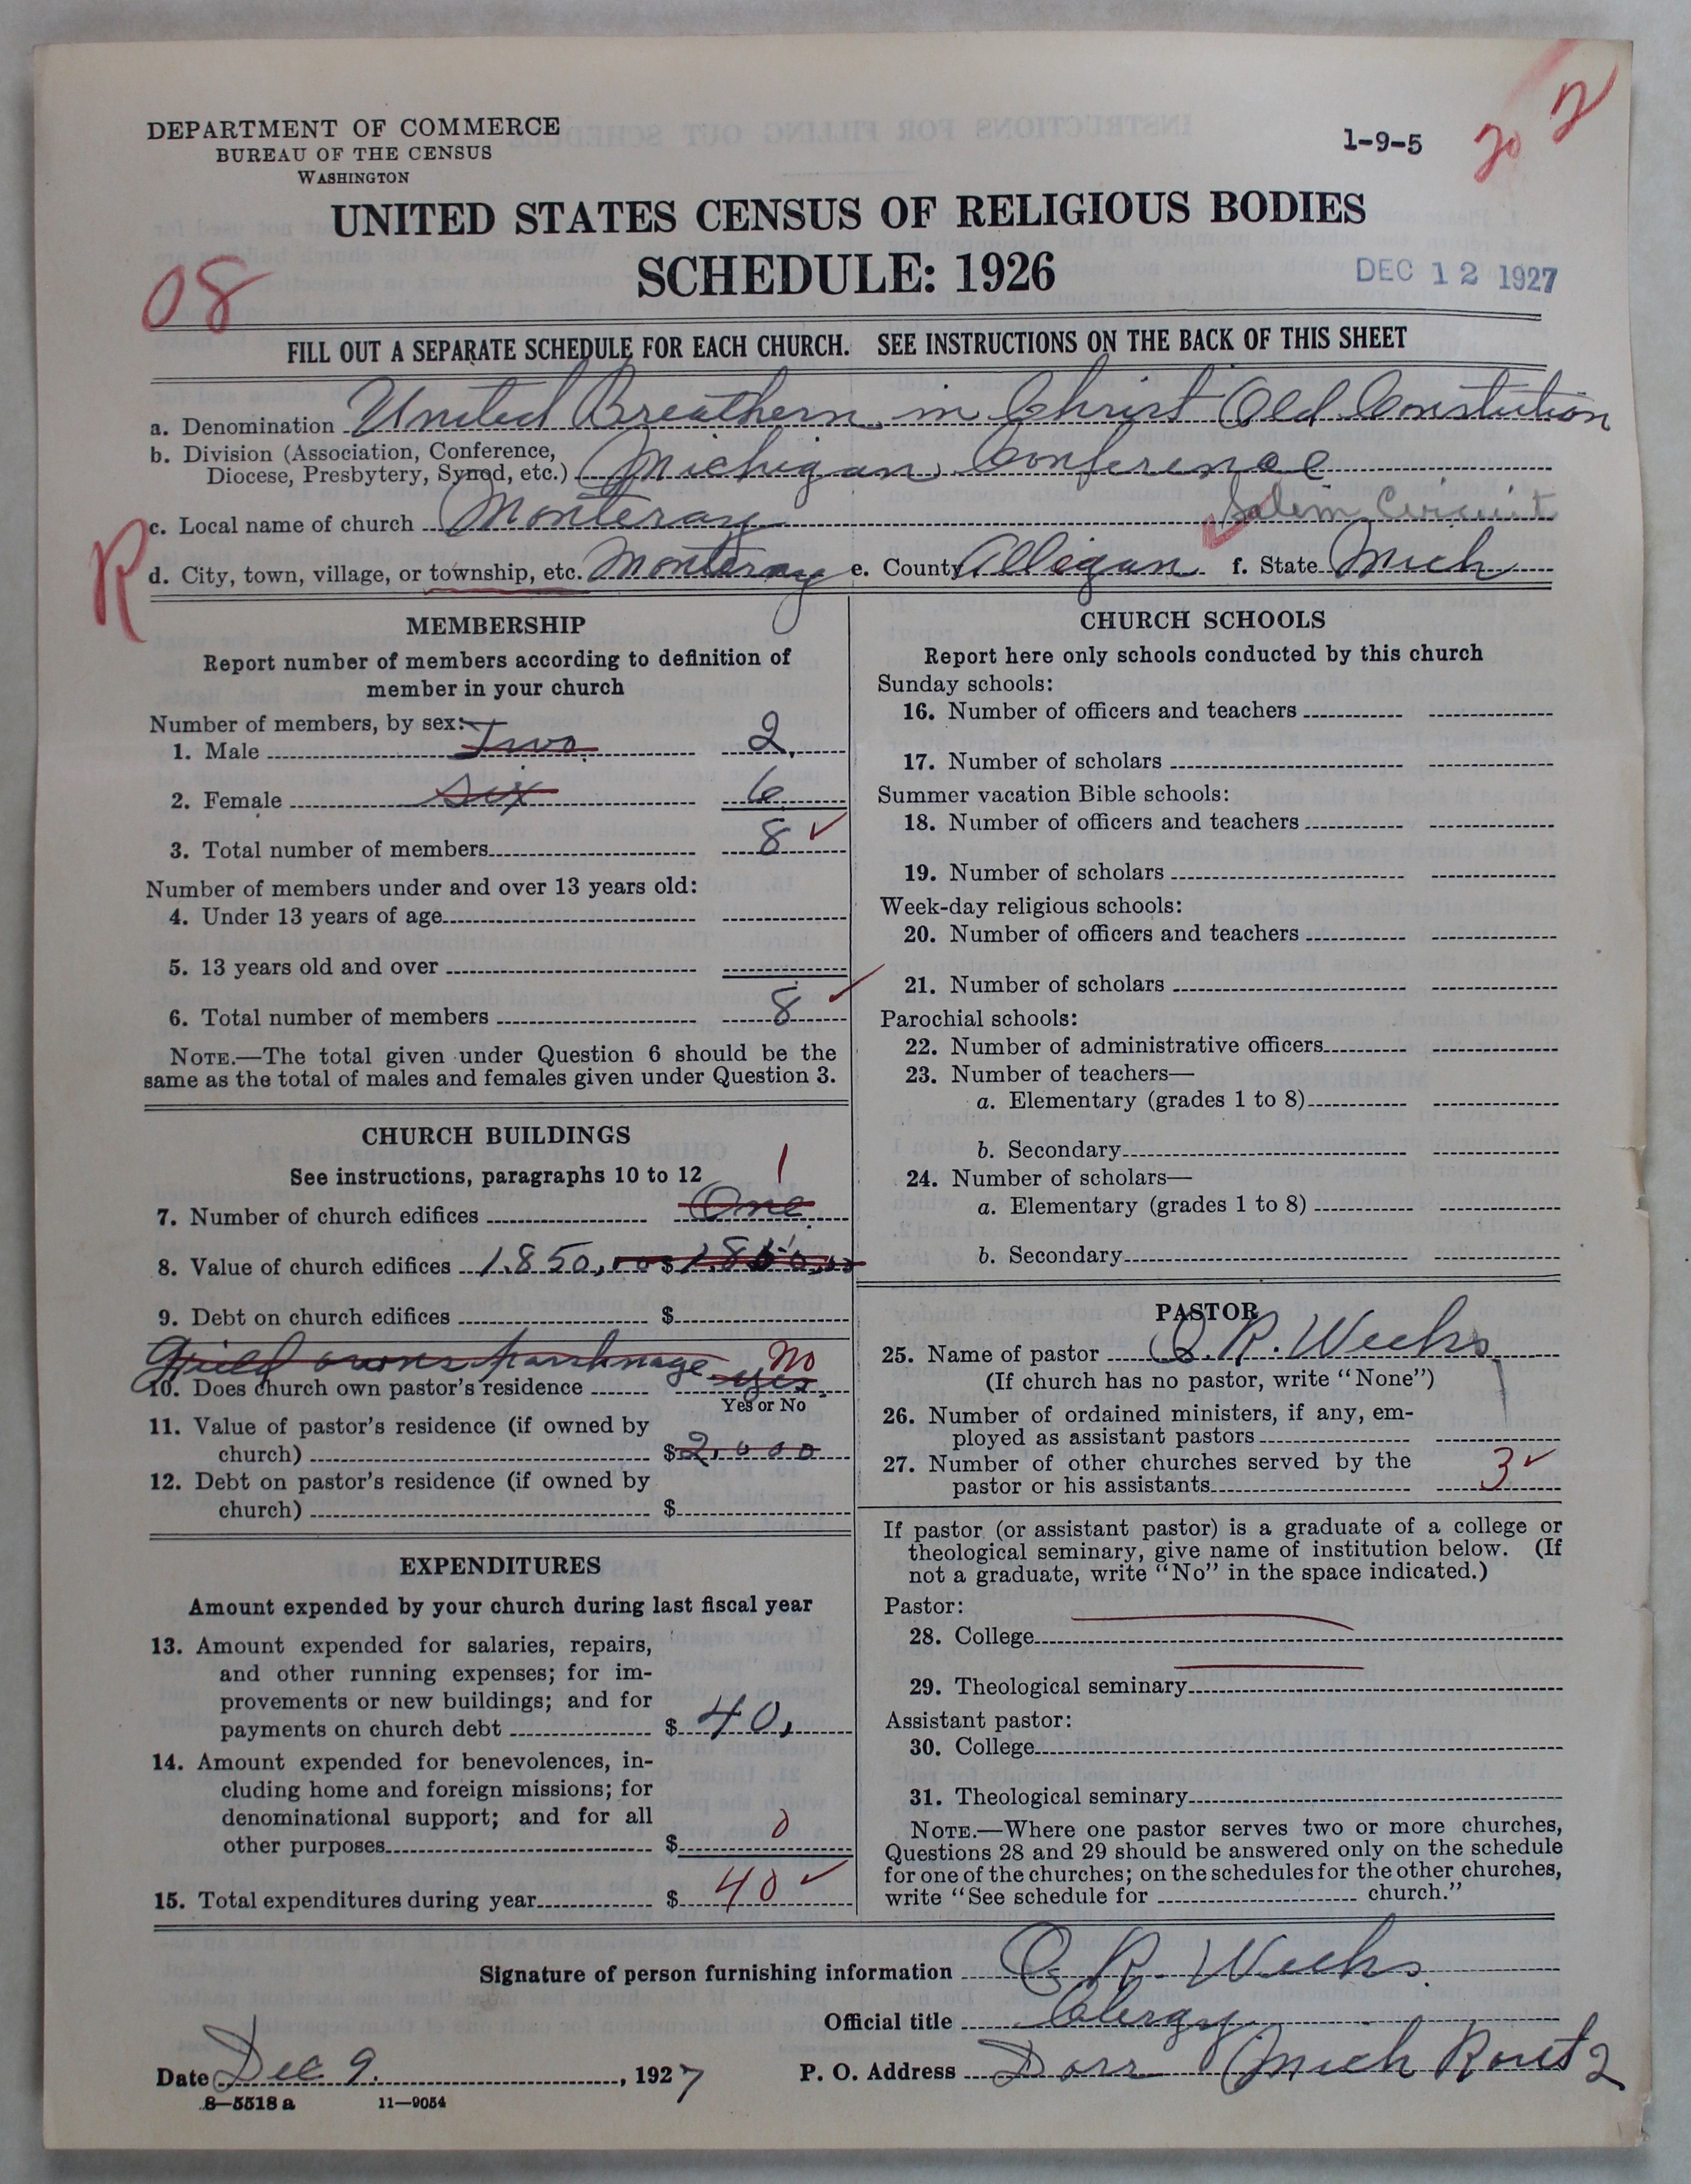 DEPARTMENT OF COMMERCE
BUREAU OF THE CENSUS
WASHINGTON
1-9-5
20 2
UNITED STATES CENSUS OF RELIGIOUS BODIES
SCHEDULE: 1926
08
DEC 12 1927
FILL OUT A SEPARATE SCHEDULE FOR EACH CHURCH. SEE INSTRUCTIONS ON THE BACK OF THIS SHEET
a. Denomination United Breathern in Christ Old Constution
b. Division (Association, Conference,
Diocese, Presbytery, Synod, etc.) Michigan Conference
c. Local name of church Monteray Salem Circuit
R
d. City, town, village, or township, etc. Monteray e. County Allegan f. State Mich
MEMBERSHIP
Report number of members according to definition of
member in your church
Number of members, by sex:
1. Male Two 2.
2. Female Six 6
3. Total number of members 8
Number of members under and over 13 years old:
4. Under 13 years of age
5. 13 years old and over
6. Total number of members 8
NOTE.—The total given under Question 6 should be the
same as the total of males and females given under Question 3.
CHURCH BUILDINGS
See instructions, paragraphs 10 to 12
1
7. Number of church edifices One
8. Value of church edifices 1.850,00 $
9. Debt on church edifices $
owns No
10. Does church own pastor's residence yes
Yes or No
11. Value of pastor's residence (if owned by
church) $2,000
12. Debt on pastor's residence (if owned by
church) $
EXPENDITURES
Amount expended by your church during last fiscal year
13. Amount expended for salaries, repairs,
and other running expenses; for im-
provements or new buildings; and for
payments on church debt $ 40,
14. Amount expended for benevolences, in-
cluding home and foreign missions; for
denominational support; and for all
other purposes $ 0
15. Total expenditures during year $ 40
CHURCH SCHOOLS
Report here only schools conducted by this church
Sunday schools:
16. Number of officers and teachers
17. Number of scholars
Summer vacation Bible schools:
18. Number of officers and teachers
19. Number of scholars
Week-day religious schools:
20. Number of officers and teachers
21. Number of scholars
Parochial schools:
22. Number of administrative officers
23. Number of teachers—
a. Elementary (grades 1 to 8)
b. Secondary
24. Number of scholars—
a. Elementary (grades 1 to 8)
b. Secondary
PASTOR
25. Name of pastor O. R. Weeks
(If church has no pastor, write "None")
26. Number of ordained ministers, if any, em-
ployed as assistant pastors
27. Number of other churches served by the
pastor or his assistants 3
If pastor (or assistant pastor) is a graduate of a college or
theological seminary, give name of institution below. (If
not a graduate, write "No" in the space indicated.)
Pastor:
28. College
29. Theological seminary
Assistant pastor:
30. College
31. Theological seminary
NOTE.—Where one pastor serves two or more churches,
Questions 28 and 29 should be answered only on the schedule
for one of the churches; on the schedules for the other churches,
write "See schedule for church."
Signature of person furnishing information O R. Weeks
Official title Clergy
Date Dec 9. , 1927 P. O. Address Dorr Mich Rout 2
8—5518 a 11—9054